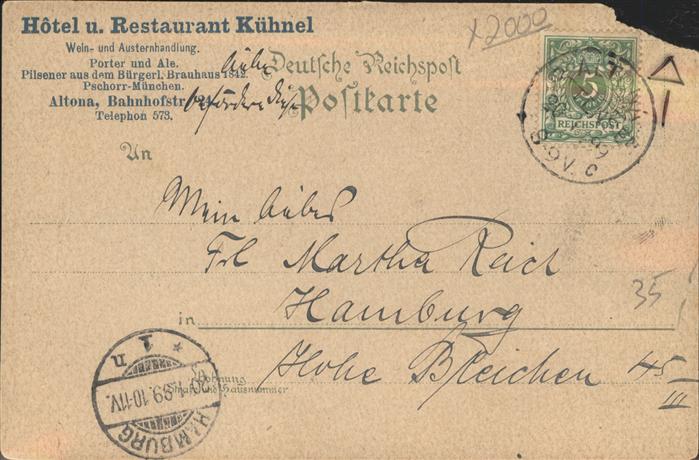 Hôtel u. Restaurant Kühnel
Wein- und Austernhandlung.
Porter und Ale.
Pilsener aus dem Bürgerl. Brauhaus 1842.
Pschorr-München.
Altona, Bahnhofstr.
Telephon 573.
Deutsche Reichspost
Postkarte
x2000
5
REICHSPOST
8-9V. c
An
Mein lieber
Frl Martha Reich
in Hamburg
35
Wohnung
(Straße und Hausnummer)
Hohe Bleichen 45
III
HAMBURG
1 n
99. 10-11V.